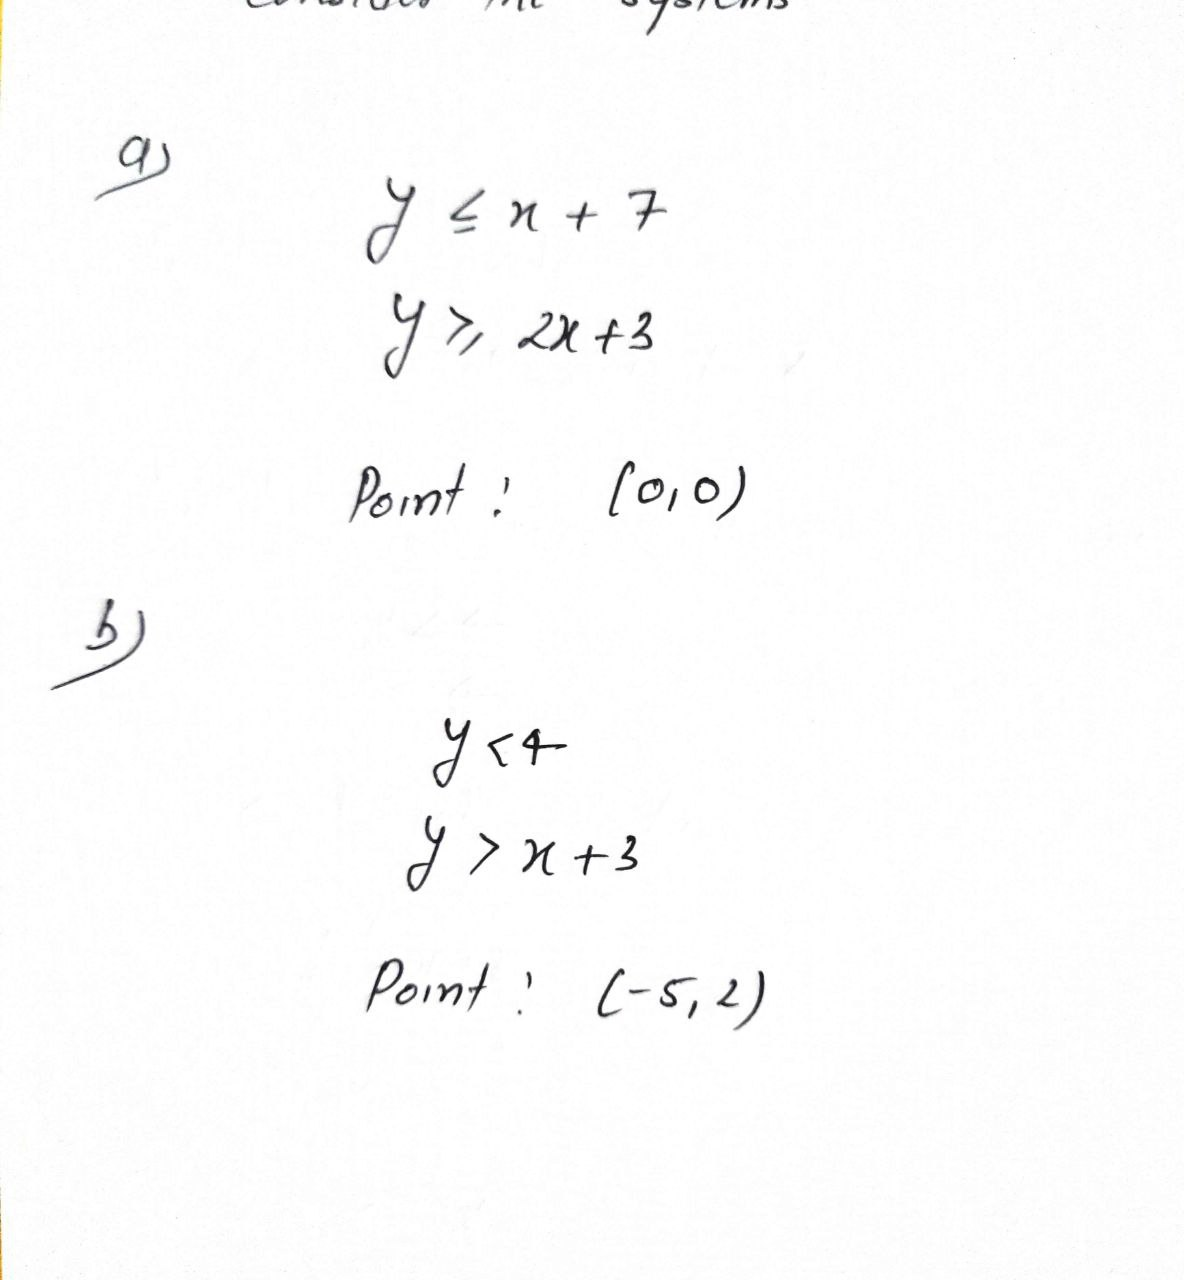 Consider the systems
a)
y ≤ x + 7
y ⩾ 2x + 3
Point : (0,0)
b)
y < 4
y > x + 3
Point : (-5, 2)